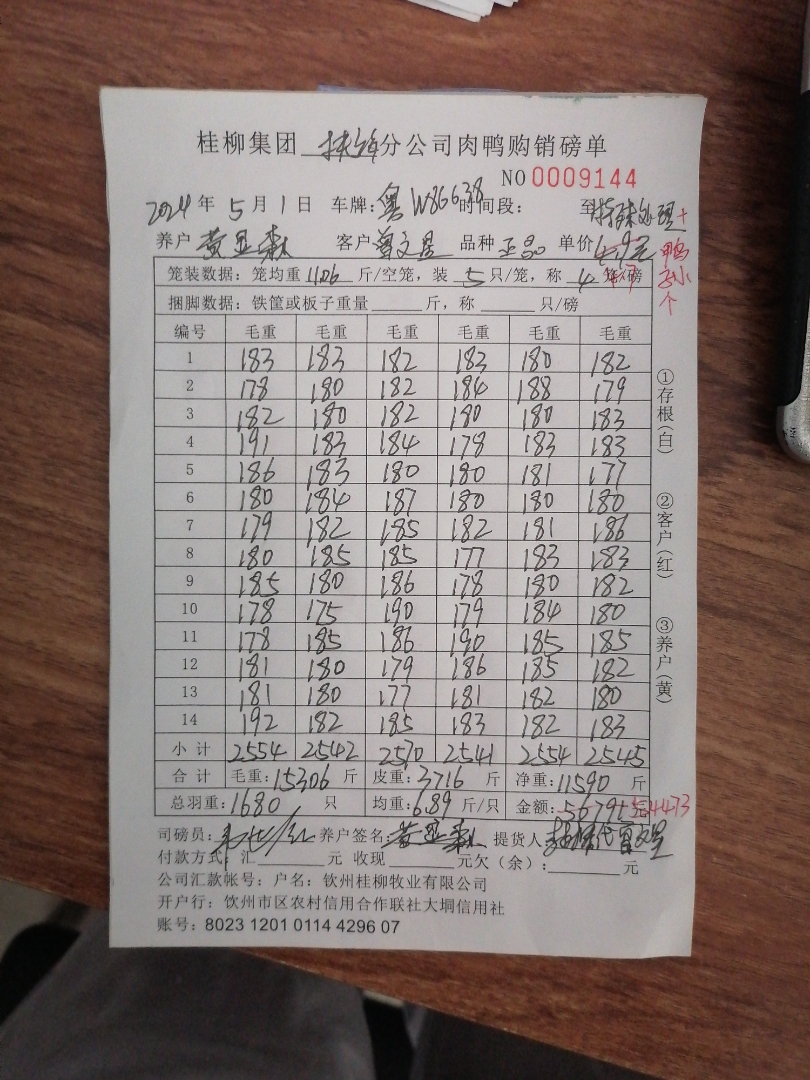 桂柳集团 分公司肉鸭购销磅单
NO 0009144
2024 年 5 月 1 日 车牌: 粤W86638 时间段: 至 特殊处理
养户 黄显森 客户 曾文星 品种 正品 单价 4.9元
鸭
小
个
笼装数据: 笼均重 11.06 斤/空笼, 装 5 只/笼, 称 4 笼/磅
捆脚数据: 铁筐或板子重量 斤, 称 只/磅
编号 毛重 毛重 毛重 毛重 毛重 毛重
1 183 183 182 183 180 182
2 178 180 182 184 188 179
3 182 180 182 180 180 183
4 191 183 184 178 183 183
5 186 183 180 180 181 177
6 180 184 187 180 180 180
7 179 182 185 182 181 186
8 180 185 185 177 183 183
9 185 180 186 178 180 182
10 178 175 190 179 184 180
11 178 185 186 190 185 185
12 181 180 179 186 185 182
13 181 180 177 181 182 180
14 192 182 185 183 182 183
小计 2554 2542 2570 2541 2554 2545
合计 毛重: 15306 斤 皮重: 3716 斤 净重: 11590 斤
总羽重: 1680 只 均重: 6.89 斤/只 金额: 56791 元 54473
司磅员: 养户签名: 黄显森 提货人 代曾文星
付款方式: 汇 元 收现 元欠(余): 元
公司汇款帐号: 户名: 钦州桂柳牧业有限公司
开户行: 钦州市区农村信用合作联社大垌信用社
账号: 8023 1201 0114 4296 07
①存根(白)
②客户(红)
③养户(黄)